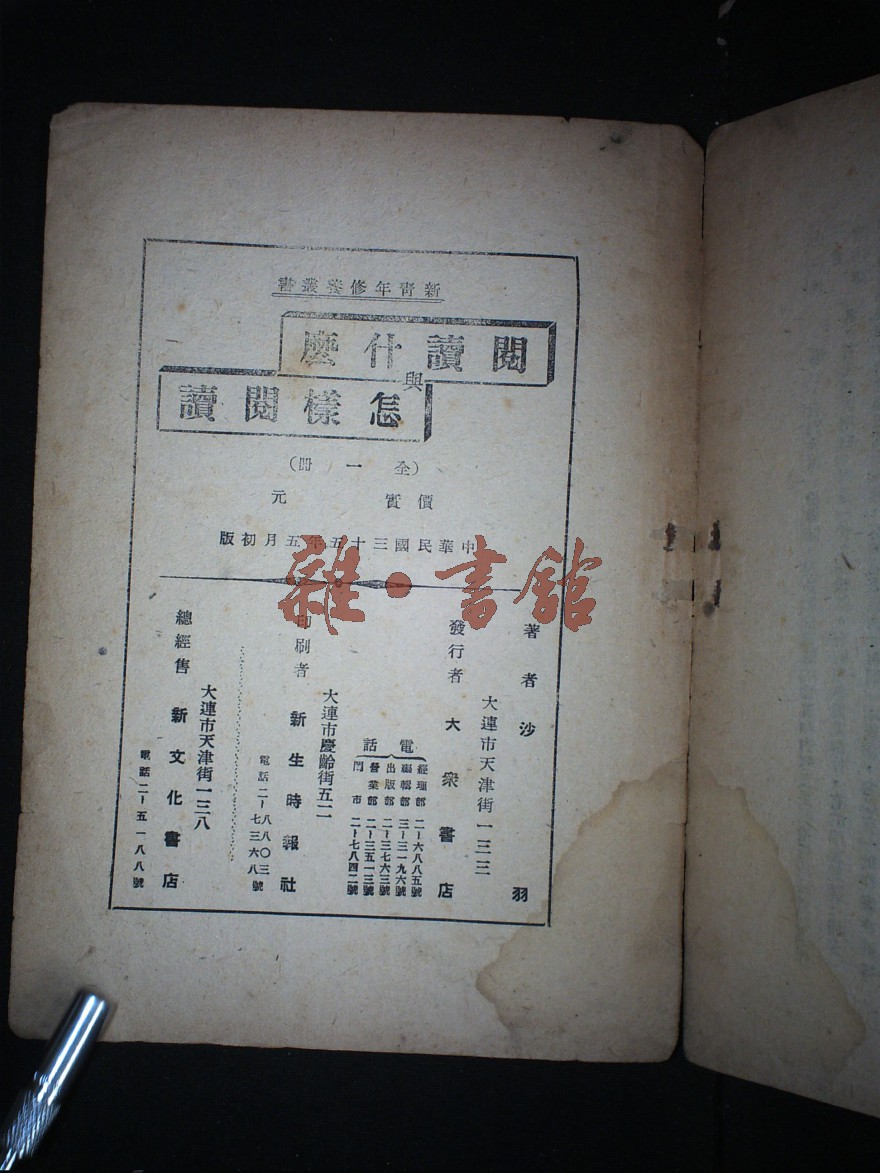 新青年修養叢書
閱讀什麼
與
怎樣閱讀
（全一冊）
價實 元
中華民國三十五年五月初版
雜·書館
著者 沙羽
大連市天津街一三三
發行者 大衆書店
電話
經理部 二—六八八五號
編輯部 三—三一九六號
出版部 二—三七六三號
營業部 二—三五一三號
門市 二—七八四二號
大連市慶齡街五二
印刷者 新生時報社
電話 二—八八〇三號
七三六八號
大連市天津街一三八
總經售 新文化書店
電話 二—五一八八號